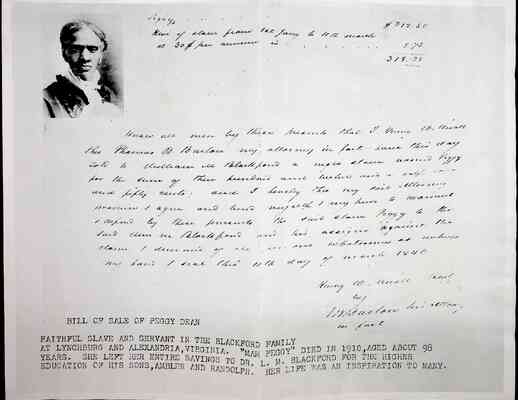 Peggy $312.50
Hire of slave from 1st Jany to 11th march
at 30$ per annum is 5.75
318.25
Know all men by these presents that I
Thomas B. my attorney in fact have this day
sold to William M Blackford a slave named Peggy
for the sum of three hundred and twelve
and fifty cents; and I hereby my said Attorney
agree and myself & my to warrant
by these presents the said slave Peggy to the
said Blackford and his assigns against the
claim & demand of whatsoever as witness
my hand & seal this 11th day of march 1840
by
in fact
BILL OF SALE OF PEGGY DEAN
FAITHFUL SLAVE AND SERVANT IN THE BLACKFORD FAMILY
AT LYNCHBURG AND ALEXANDRIA,VIRGINIA. "MAM PEGGY" DIED IN 1910,AGED ABOUT 98
YEARS. SHE LEFT HER ENTIRE SAVINGS TO DR. L. M. BLACKFORD FOR THE HIGHER
EDUCATION OF HIS SONS,AMBLER AND RANDOLPH. HER LIFE WAS AN INSPIRATION TO MANY.